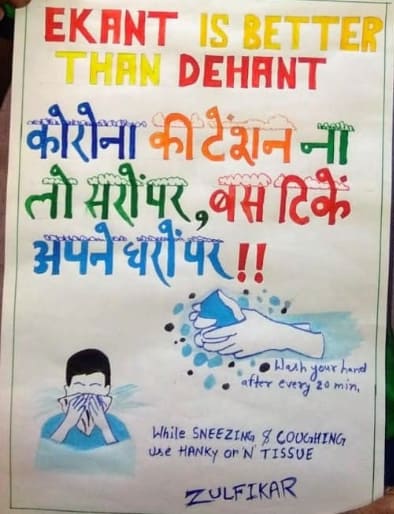 EKANT IS BETTER
THAN DEHANT
कोरोना की टेंशन ना
लो सरों पर, बस टिकें
अपने घरों पर!!
Wash your hand
after every 20 min.
While SNEEZING & COUGHING
use HANKY or 'N' TISSUE
ZULFIKAR